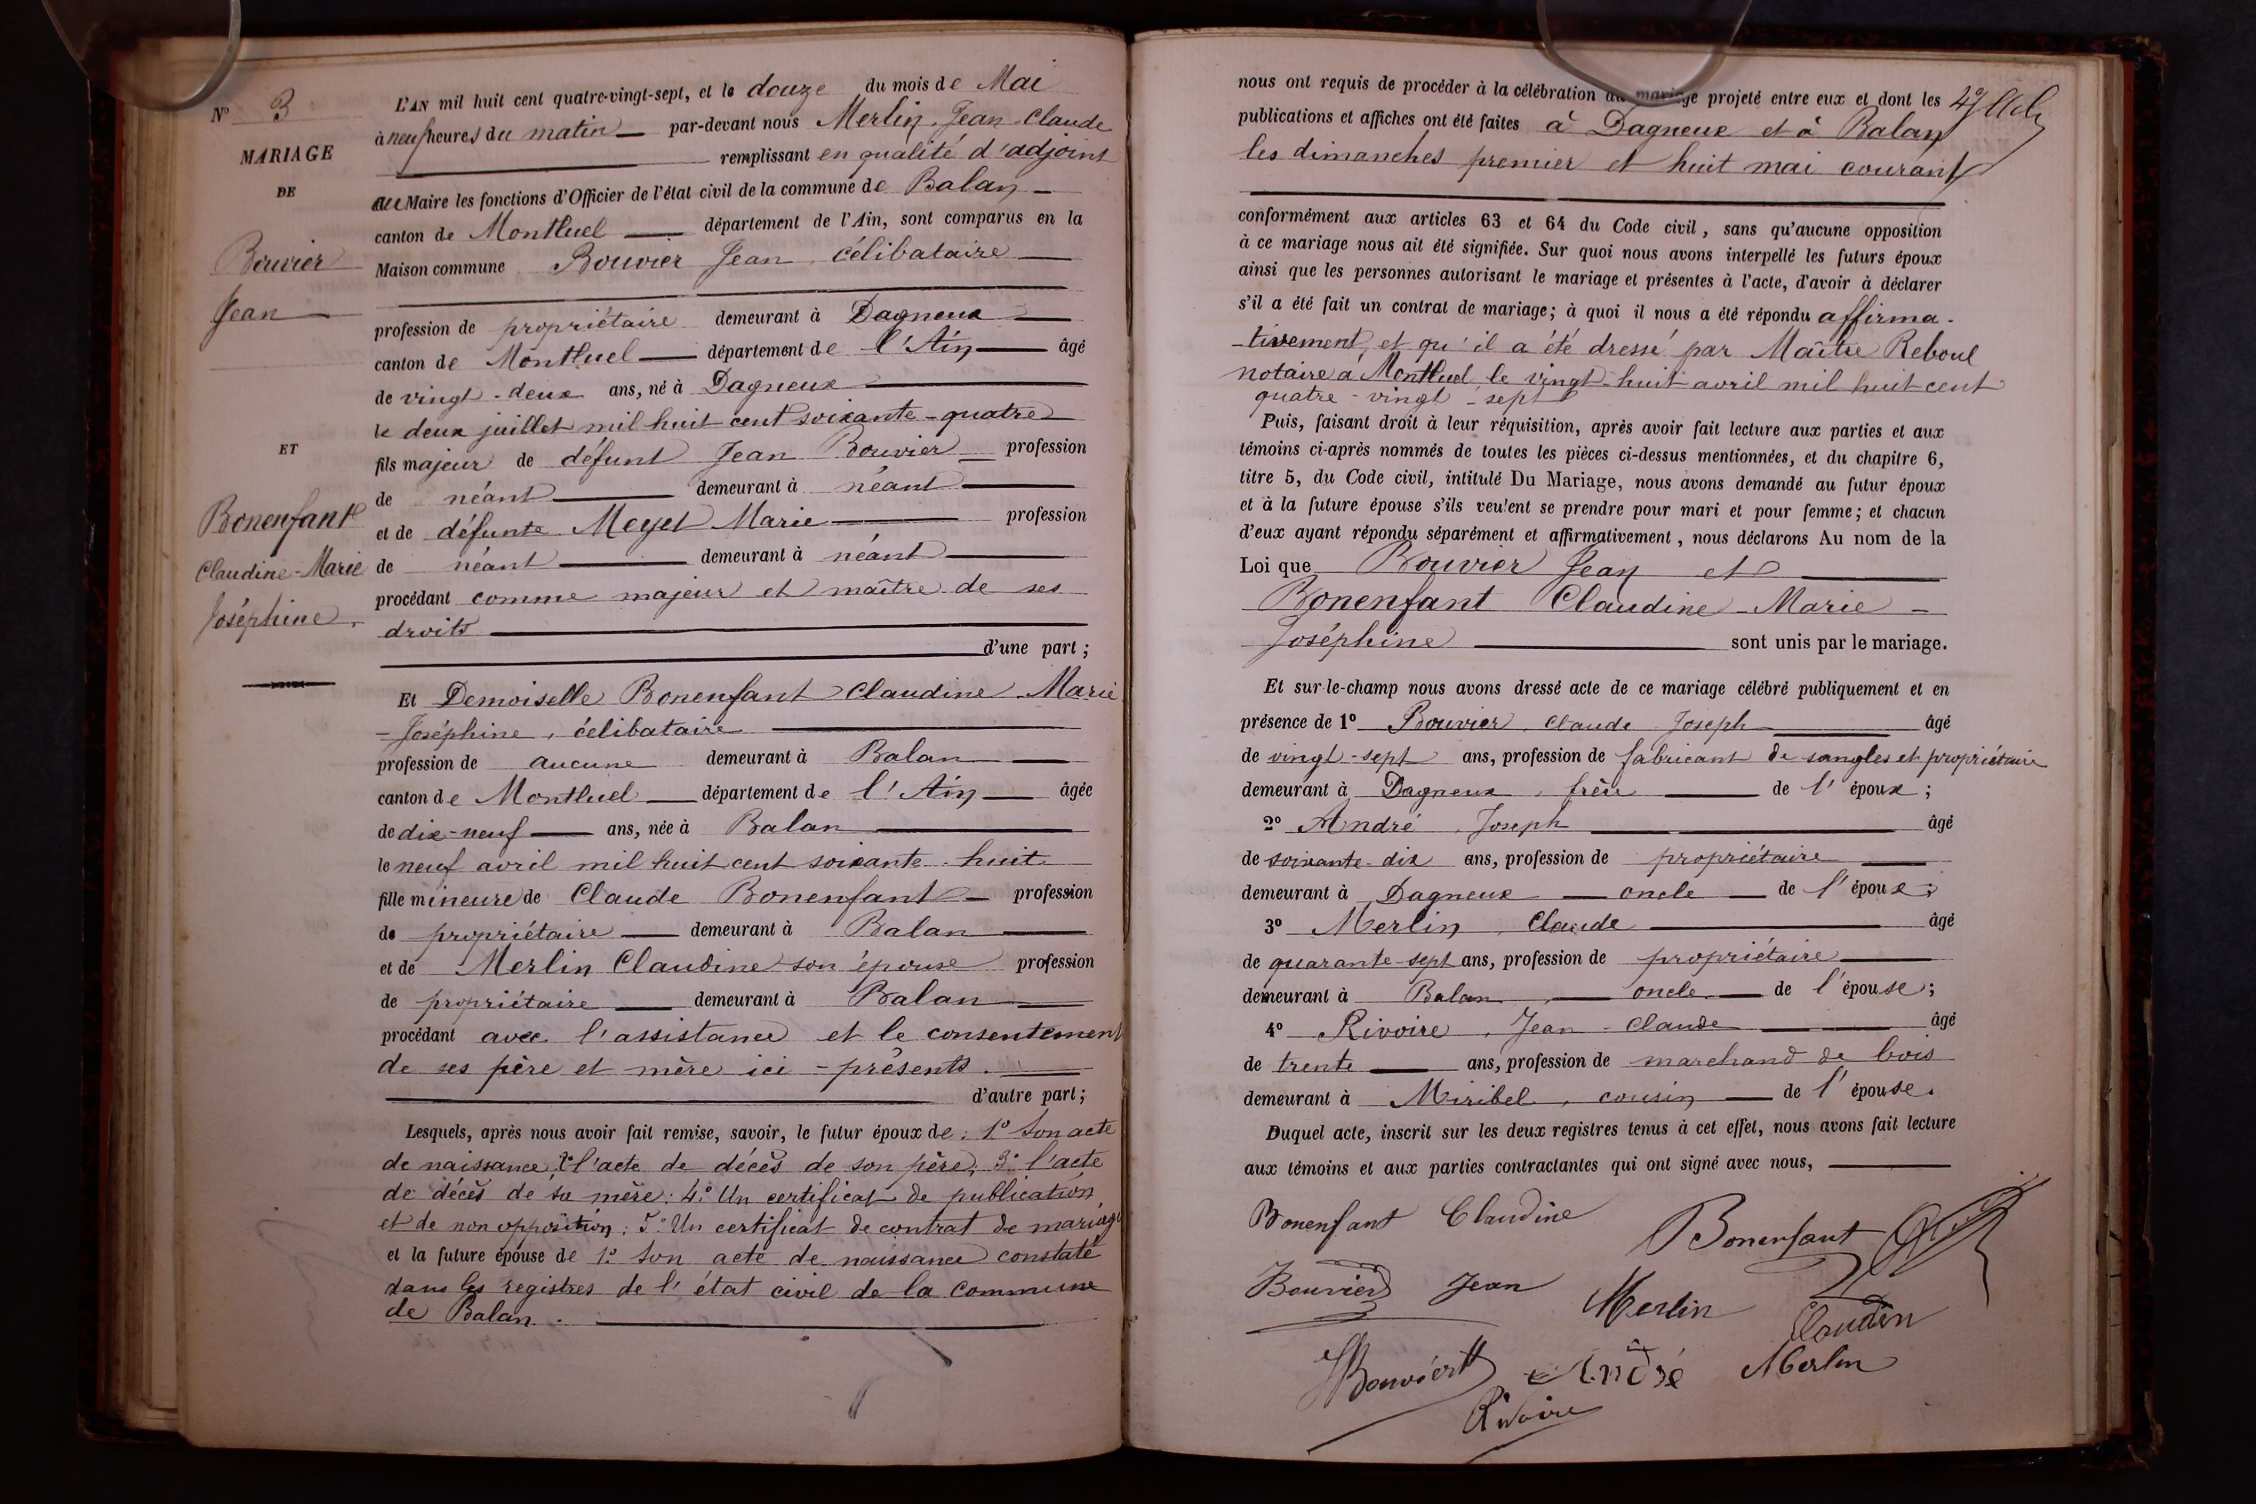 N° 3
MARIAGE
DE
Bouvier
Jean
ET
Bonenfant
Claudine-Marie
Joséphine.
L'AN mil huit cent quatre-vingt-sept, et le douze du mois de Mai
à neuf heures du matin — par-devant nous Merlin Jean-Claude
remplissant en qualité d'adjoint
au Maire les fonctions d'Officier de l'état civil de la commune de Balan —
canton de Montluel — département de l'Ain, sont comparus en la
Maison commune Bouvier Jean, célibataire —
profession de propriétaire demeurant à Dagneux —
canton de Montluel — département de l'Ain — âgé
de vingt-deux ans, né à Dagneux —
le deux juillet mil huit cent soixante-quatre
fils majeur de défunt Jean Bouvier — profession
de néant — demeurant à néant —
et de défunte Meyet Marie — profession
de néant — demeurant à néant —
procédant comme majeur et maître de ses
droits —
d'une part ;
Et Demoiselle Bonenfant Claudine-Marie
-Joséphine, célibataire —
profession de aucune demeurant à Balan —
canton de Montluel — département de l'Ain — âgée
de dix-neuf — ans, née à Balan —
le neuf avril mil huit cent soixante-huit
fille mineure de Claude Bonenfant — profession
de propriétaire — demeurant à Balan —
et de Merlin Claudine son épouse profession
de propriétaire — demeurant à Balan —
procédant avec l'assistance et le consentement
de ses père et mère ici-présents. —
d'autre part ;
Lesquels, après nous avoir fait remise, savoir, le futur époux de : 1° Son acte
de naissance, 2° l'acte de décès de son père; 3° l'acte
de décès de sa mère : 4° Un certificat de publication
et de non opposition; 5° Un certificat de contrat de mariage
et la future épouse de 1° Son acte de naissance constaté
dans les registres de l'état civil de la commune
de Balan. —
nous ont requis de procéder à la célébration du mariage projeté entre eux et dont les
publications et affiches ont été faites à Dagneux et à Balan
les dimanches premier et huit mai courant
conformément aux articles 63 et 64 du Code civil, sans qu'aucune opposition
à ce mariage nous ait été signifiée. Sur quoi nous avons interpellé les futurs époux
ainsi que les personnes autorisant le mariage et présentes à l'acte, d'avoir à déclarer
s'il a été fait un contrat de mariage; à quoi il nous a été répondu affirma-
-tivement, et qu'il a été dressé par Maître Reboul
notaire à Montluel le vingt-huit avril mil huit cent
quatre-vingt-sept
Puis, faisant droit à leur réquisition, après avoir fait lecture aux parties et aux
témoins ci-après nommés de toutes les pièces ci-dessus mentionnées, et du chapitre 6,
titre 5, du Code civil, intitulé Du Mariage, nous avons demandé au futur époux
et à la future épouse s'ils veulent se prendre pour mari et pour femme; et chacun
d'eux ayant répondu séparément et affirmativement, nous déclarons Au nom de la
Loi que Bouvier Jean et —
Bonenfant Claudine-Marie -
Joséphine — sont unis par le mariage.
Et sur-le-champ nous avons dressé acte de ce mariage célébré publiquement et en
présence de 1° Bouvier Claude Joseph — âgé
de vingt-sept ans, profession de fabricant de sangles et propriétaire
demeurant à Dagneux, frère — de l'époux ;
2° André, Joseph — âgé
de soixante-dix ans, profession de propriétaire —
demeurant à Dagneux — oncle — de l'époux ;
3° Merlin, Claude — âgé
de quarante-sept ans, profession de propriétaire —
demeurant à Balan, — oncle — de l'épouse ;
4° Rivoire, Jean-Claude — âgé
de trente — ans, profession de marchand de bois
demeurant à Miribel, cousin — de l'épouse.
Duquel acte, inscrit sur les deux registres tenus à cet effet, nous avons fait lecture
aux témoins et aux parties contractantes qui ont signé avec nous, —
Bonenfant Claudine
Bonenfant
Bouvier Jean
Merlin
Claudin
Bouvier
André
Merlin
Rivoire